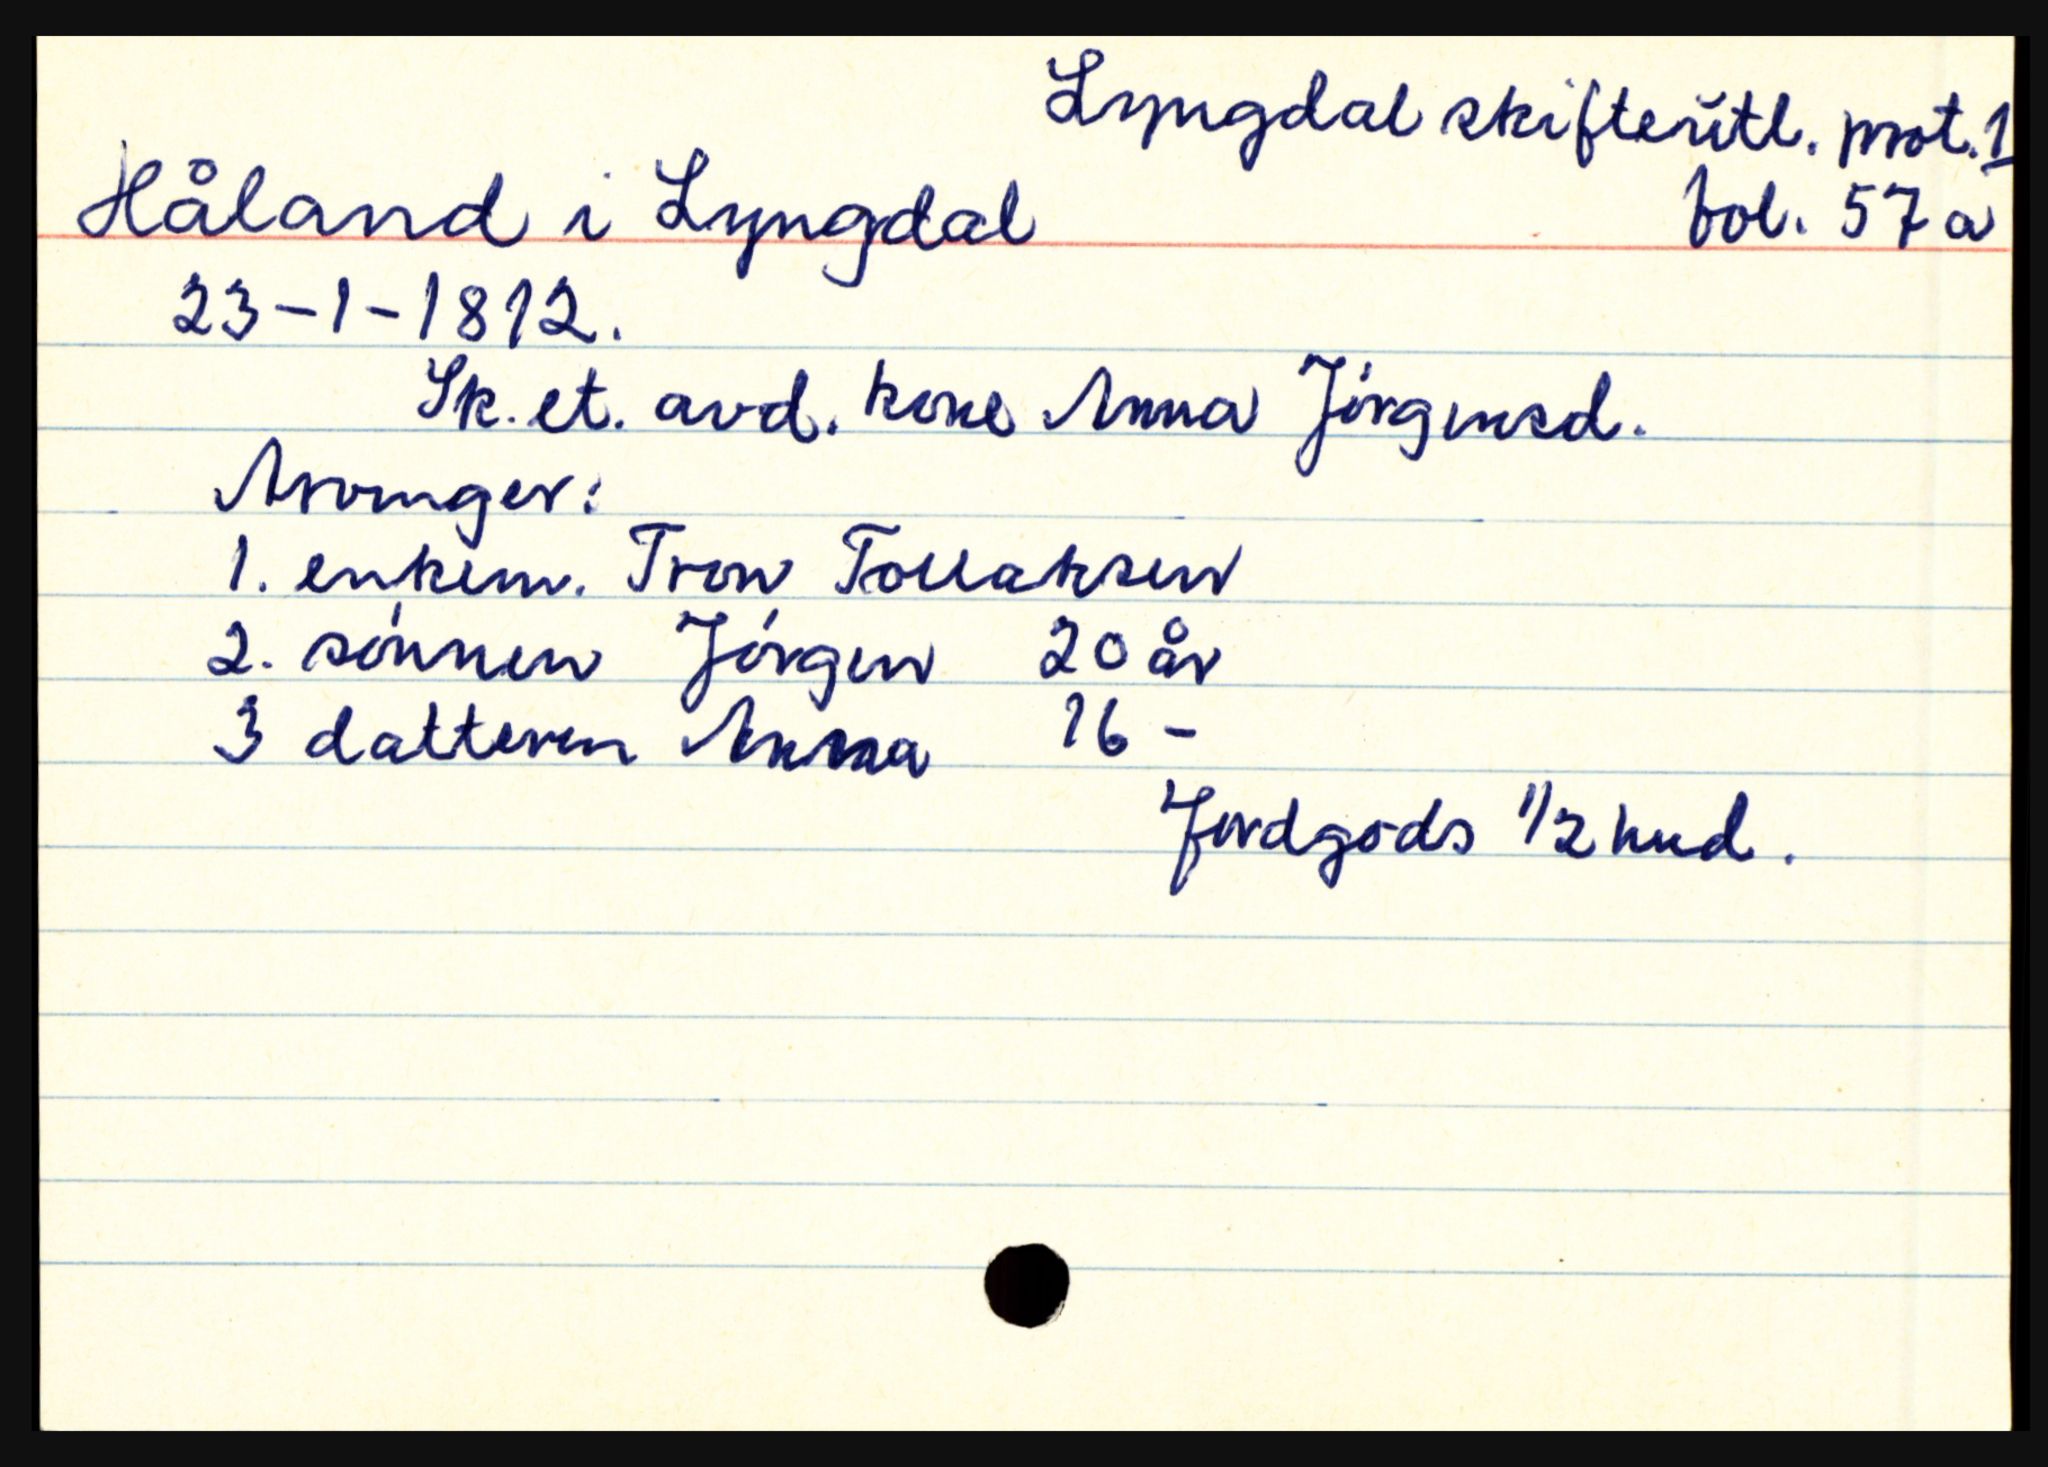 Lyngdal skifteutl. prot. 1
Håland i Lyngdal fol. 57a
23-1-1812.
Sk. et. avd. kone Anna Jörgensd.
Arvinger:
1. enkem. Tron Tollaksen
2. sönnen Jörgen 20 år
3 datteren Anna 16 -
Jordgods 1/2 hud.